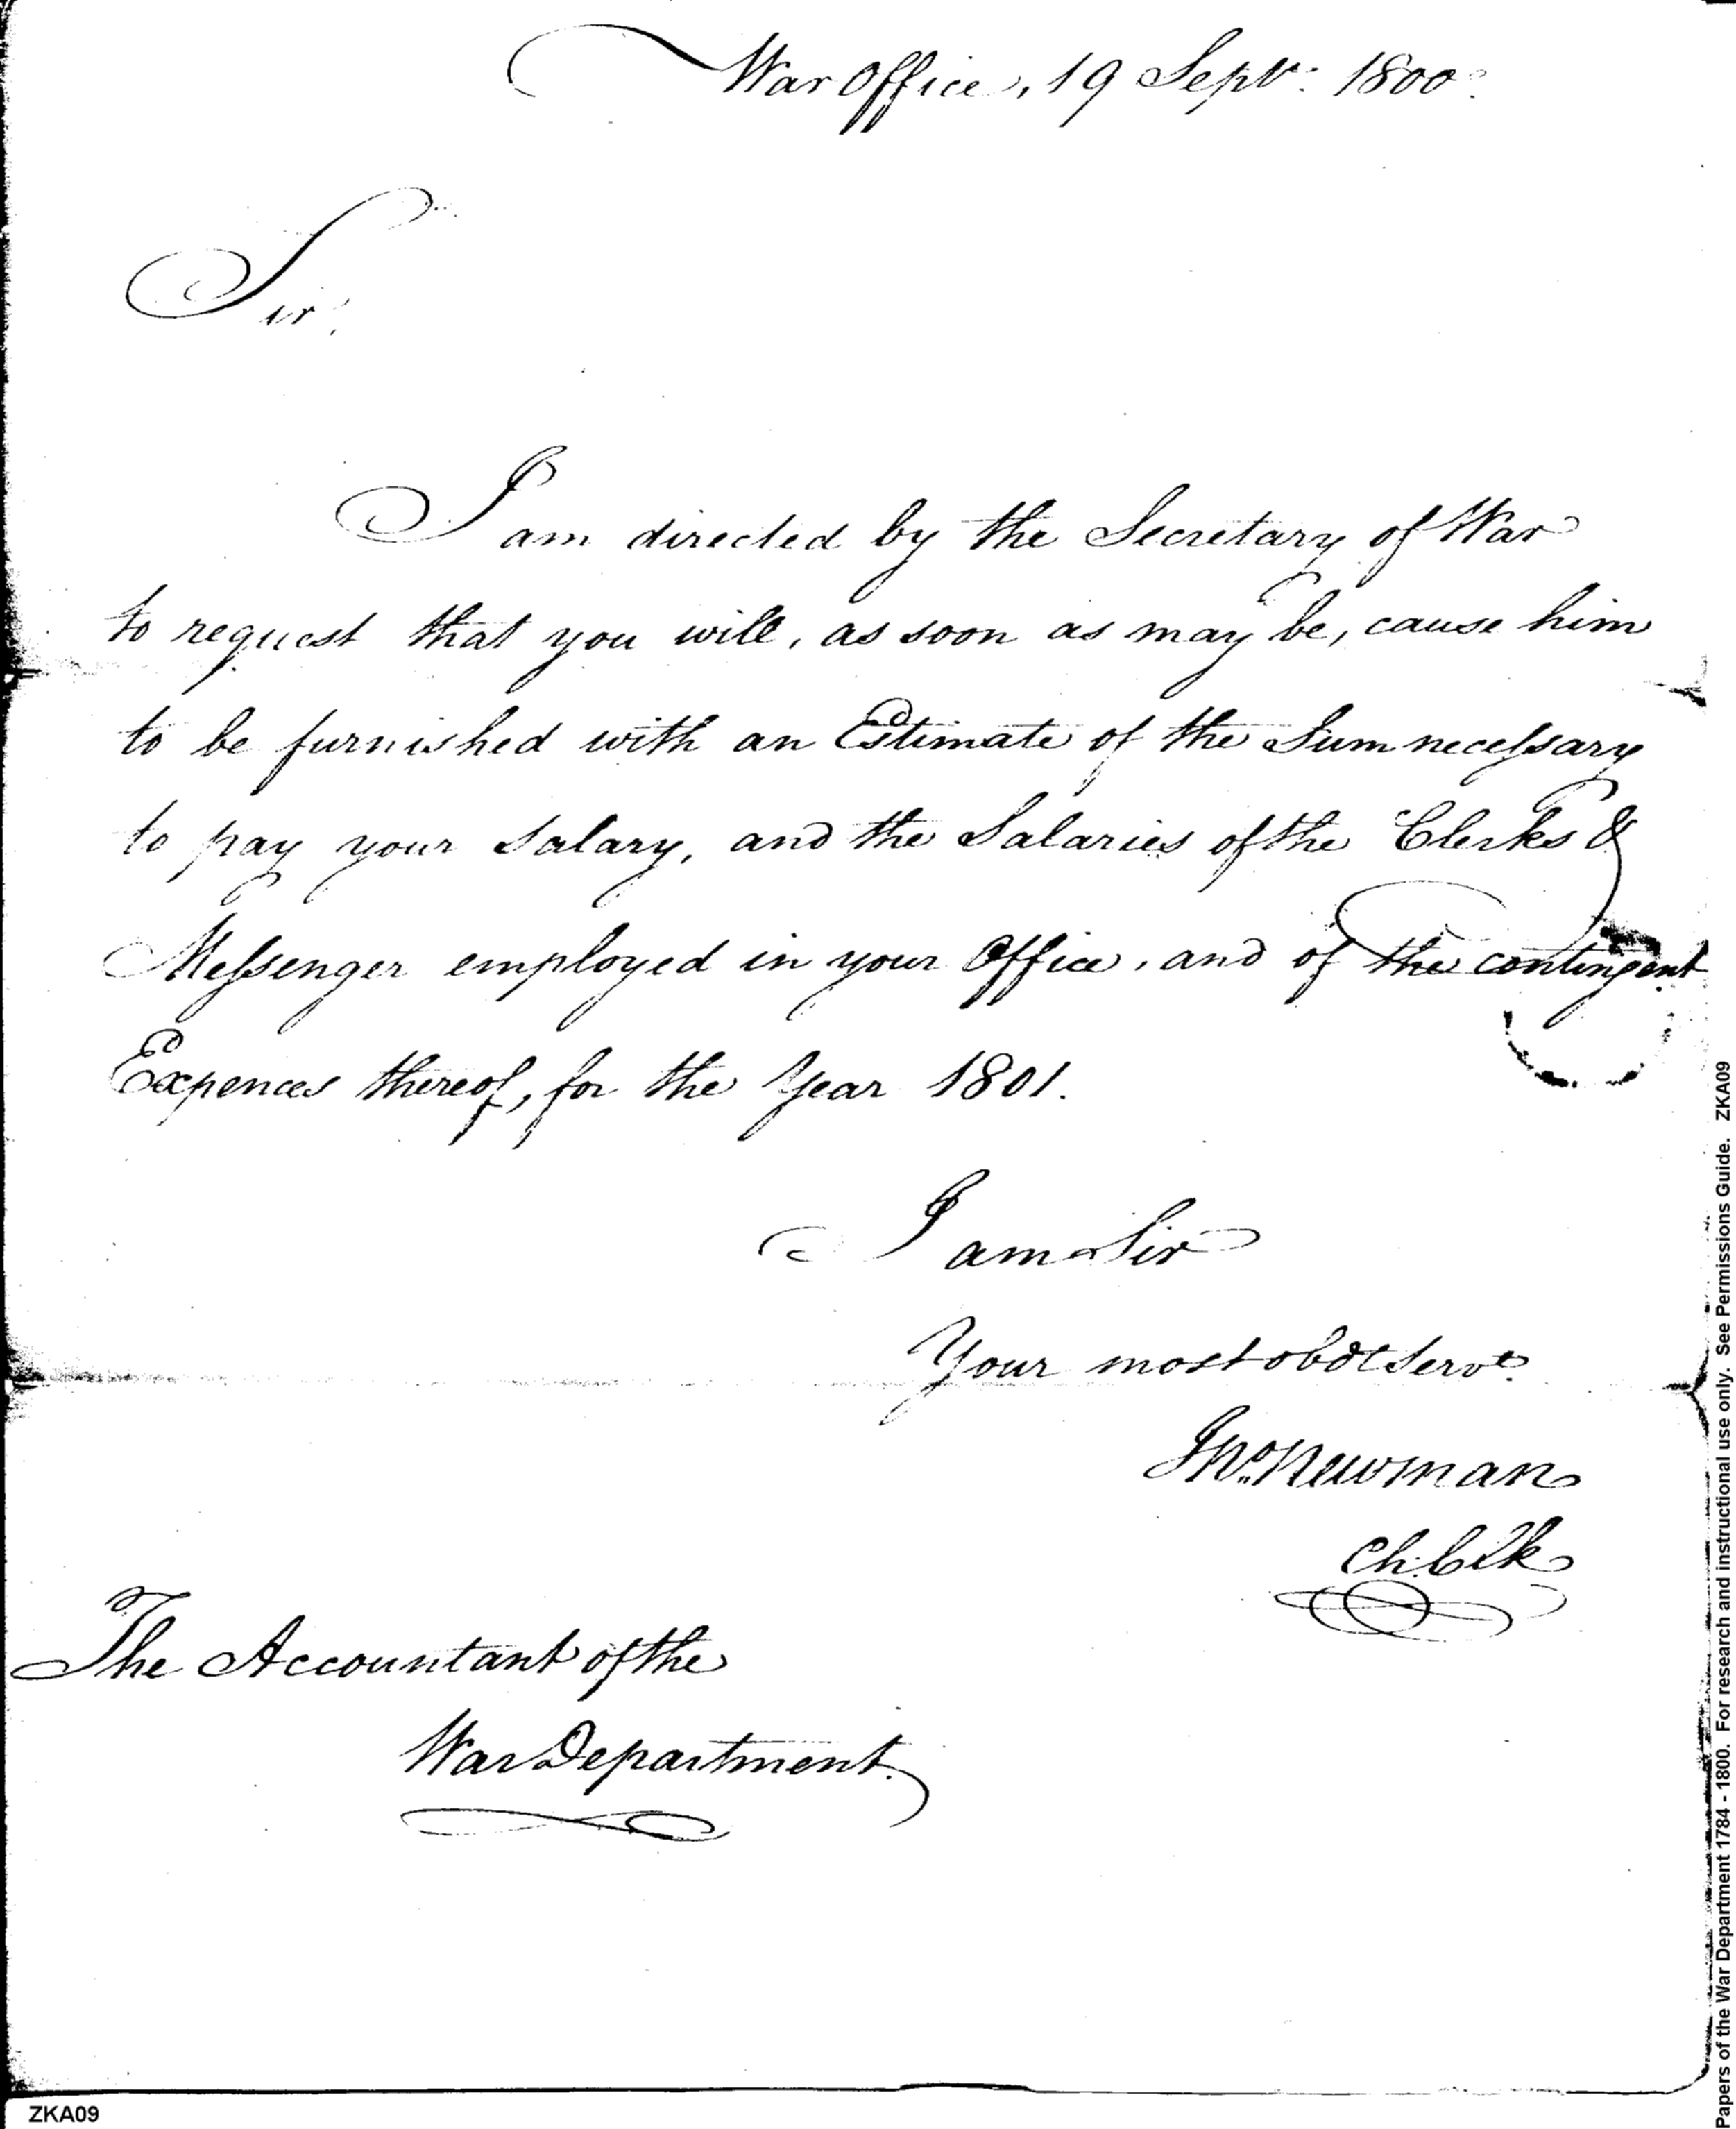 War Office, 19 Sept.r 1800.
Sir,
I am directed by the Secretary of War
to request that you will, as soon as may be, cause him
to be furnished with an Estimate of the Sum necessary
to pay your Salary, and the Salaries of the Clerks &
Messenger employed in your Office, and of the contingent
Expences thereof, for the Year 1801.
I am Sir
Your most obdt Servt.
Jno. Newman
Ch. Clk
The Accountant of the
War Department.
ZKA09
Papers of the War Department 1784 - 1800. For research and instructional use only. See Permissions Guide. ZKA09